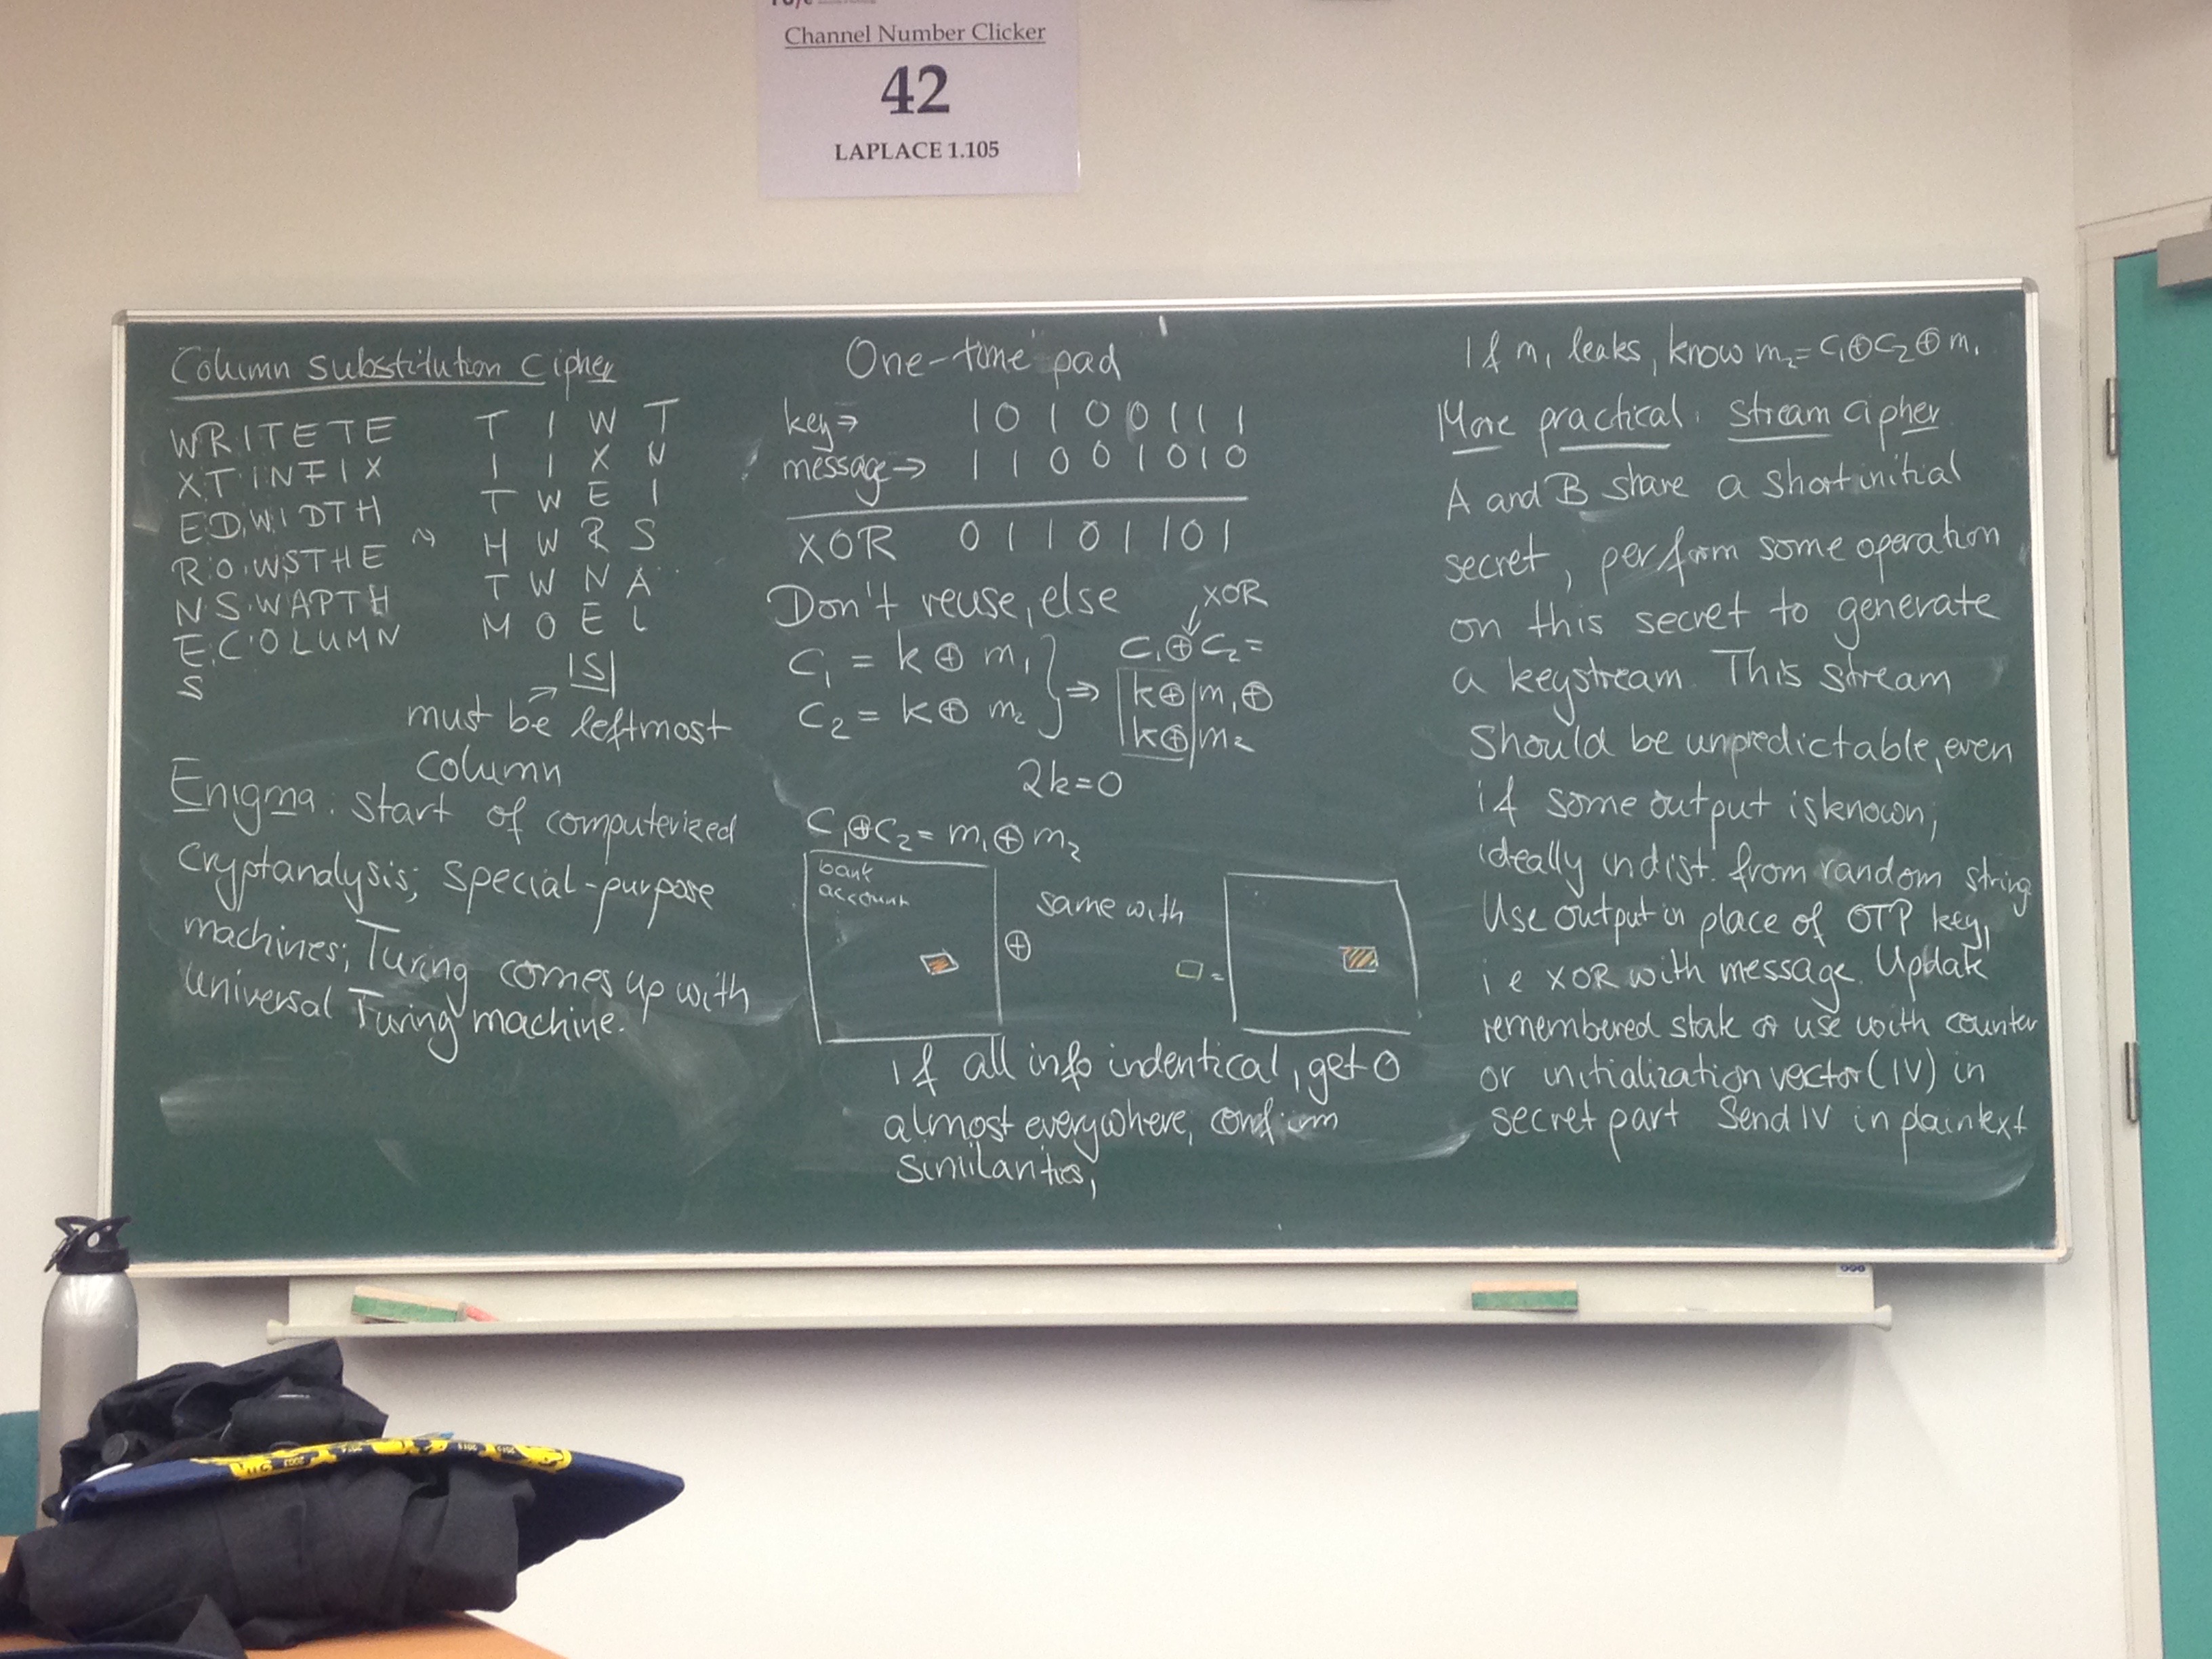 Channel Number Clicker
42
LAPLACE 1.105
Column Substitution Cipher
WRITETE T I W T
XTINFIX I I X N
EDWIDTH T W E I
ROWSTHE ~ H W R S
NSWAPTH T W N A
ECOLUMN M O E L
S |S|
must be leftmost
column
Enigma: start of computerized
cryptanalysis; special-purpose
machines; Turing comes up with
universal Turing machine.
One-time pad
key → 1 0 1 0 0 1 1 1
message → 1 1 0 0 1 0 1 0
XOR 0 1 1 0 1 1 0 1
Don't reuse, else XOR
C₁ = k ⊕ m₁ } C₁⊕C₂=
C₂ = k ⊕ m₂ } ⇒ k⊕ m₁ ⊕
k⊕ m₂
2k=0
C₁⊕C₂= m₁⊕m₂
bank
account
⊕ same with =
if all info indentical, get 0
almost everywhere, confirm
similarities,
If m₁ leaks, know m₂= C₁⊕C₂⊕m₁
More practical: Stream cipher
A and B share a short initial
secret, perform some operation
on this secret to generate
a keystream. This stream
should be unpredictable, even
if some output is known;
ideally indist. from random string
Use output in place of OTP key,
i e XOR with message. Update
remembered state or use with counter
or initialization vector (IV) in
secret part Send IV in plaintext